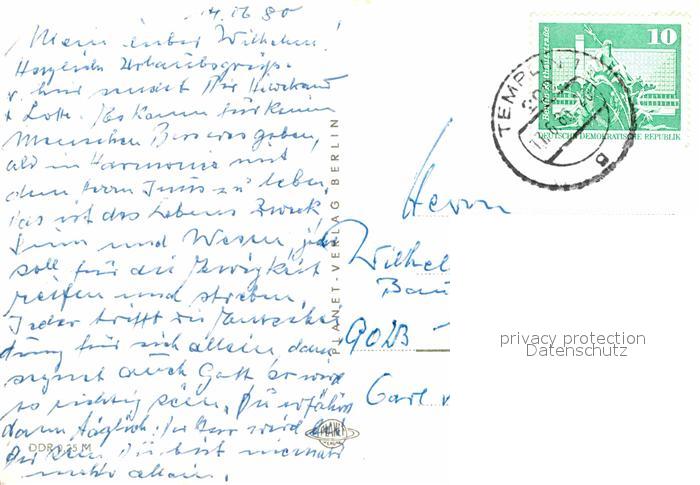 14.IX 80
Mein lieber Wilhelm!
Herzliche Urlaubsgrüsse
Lotte. Es kann für keinen
Menschen Besseres geben,
als in Harmonie mit
dem Herrn Jesus zu leben.
Das ist des Lebens Zweck
Sinn und Wesen, jeder
soll für die Ewigkeit
reifen und streben.
Jeder trifft die Entscheidung
für sich allein, dann
segnet auch Gott Er wird
so richtig sein, Du erfährst
dann täglich: Der Herr wird
Dir sein Du bist niemals
mehr allein.
DDR 0,25 M
PLANET-VERLAG BERLIN
PLANET
10
DEUTSCHE DEMOKRATISCHE REPUBLIK
TEMPLIN 1
Herrn
Wilhel
Bau
902B
Carl v
privacy protection
Datenschutz